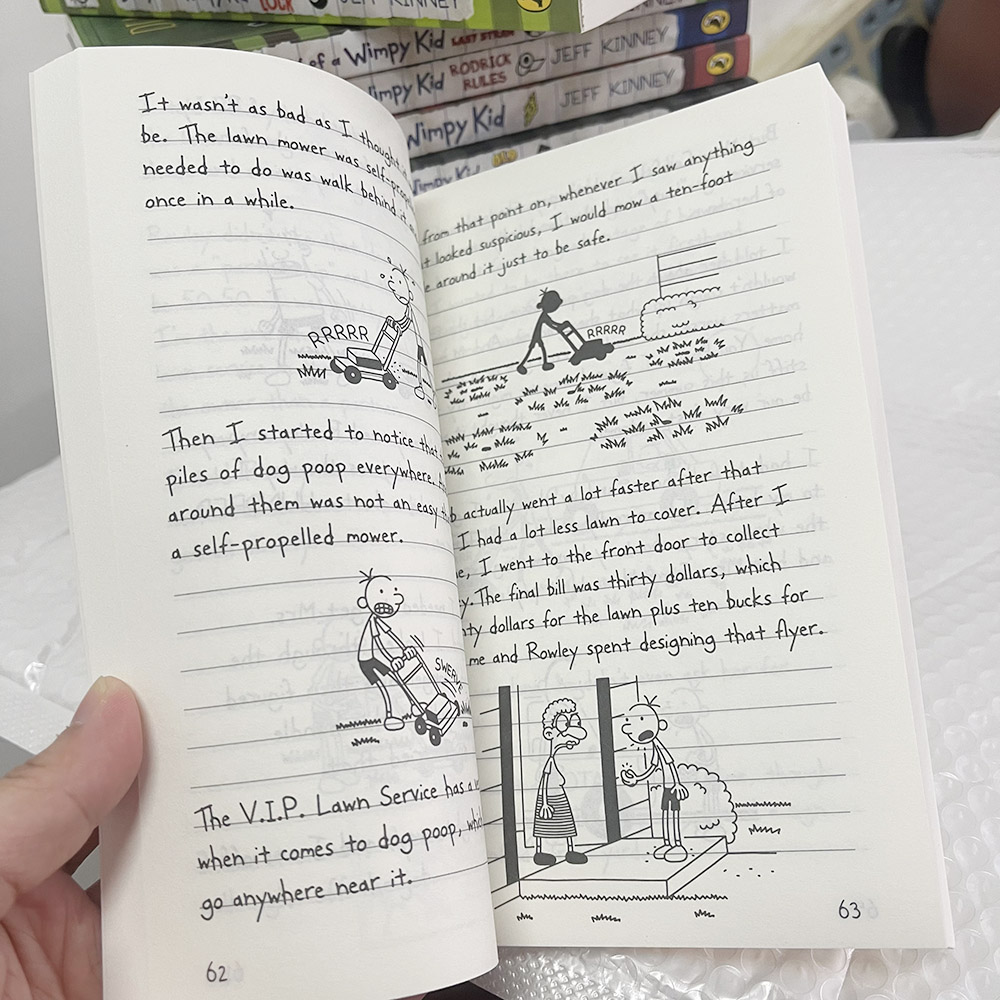 LOCK JEFF KINNEY
of a Wimpy Kid LAST STRAW
Wimpy Kid RODRICK RULES JEFF KINNEY
Wimpy Kid JEFF KINNEY
Wimpy Kid
It wasn't as bad as I thought
be. The lawn mower was
needed to do was walk behind
once in a while.
RRRRR
Then I started to notice that
piles of dog poop everywhere.
around them was not an easy
a self-propelled mower.
SWERVE
The V.I.P. Lawn Service has a
when it comes to dog poop,
go anywhere near it.
62
from that point on, whenever I saw anything
looked suspicious, I would mow a ten-foot
around it just to be safe.
RRRRR
actually went a lot faster after that
I had a lot less lawn to cover. After I
I went to the front door to collect
The final bill was thirty dollars, which
dollars for the lawn plus ten bucks for
me and Rowley spent designing that flyer.
63